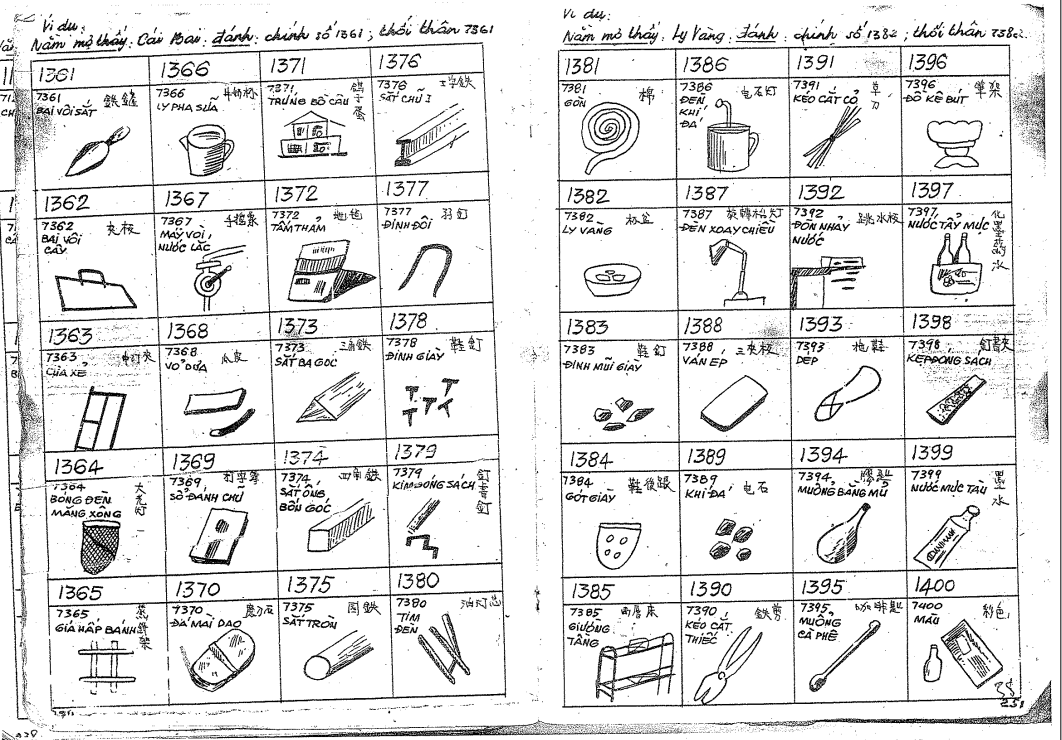 Ví dụ:
Nằm mơ thấy: Cái Bai: đánh: chính số 1361; thối thân 7361
1361
7361 鉄鏟
BAI VÔI SẮT
1366
7366 牛奶杯
LY PHA SỮA
1371
7371 鴿子蛋
TRỨNG BỒ CÂU
1376
7376 工字鉄
SẮT CHỮ I
1362
7362 灰板
BAI VÔI
CÂY
1367
7367
MÁY VOI,
NƯỚC LẮC
1372
7372 地毡
TẤM THẢM
1377
7377
ĐINH ĐÔI
1363
7363
CỬA XE
1368
7368 瓜皮
VỎ DƯA
1373
7373 三角鉄
SẮT BA GÓC
1378
7378 鞋釘
ĐINH GIÀY
1364
7364
BÓNG ĐÈN
MĂNG XÔNG
1369
7369
SỔ ĐÁNH CHỮ
1374
7374 四角鉄
SẮT ỐNG
BỐN GÓC
1379
7379 釘書釘
KIM ĐÓNG SÁCH
1365
7365 蒸餅架
GIÁ HẤP BÁNH
1370
7370 磨刀石
ĐÁ MÀI DAO
1375
7375 圆鉄
SẮT TRÒN
1380
7380 油灯芯
TIM
ĐÈN
Ví dụ:
Nằm mơ thấy: Ly Vàng: đánh: chính số 1382; thối thân 7382
1381
7381 棉
GÒN
1386
7386 电石灯
ĐÈN
KHÍ
ĐÁ
1391
7391 草刀
KÉO CẮT CỎ
1396
7396 筆架
ĐỒ KÊ BÚT
1382
7382
LY VÀNG
1387
7387
ĐÈN XOAY CHIỀU
1392
7392 跳水板
ĐÒN NHẢY
NƯỚC
1397
7397
NƯỚC TẨY MỰC
1383
7383 鞋釘
ĐINH MŨI GIÀY
1388
7388 三夾板
VÁN ÉP
1393
7393 拖鞋
DÉP
1398
7398 釘書夾
KẸP ĐÓNG SÁCH
1384
7384
GÓT GIÀY
1389
7389 电石
KHÍ ĐÁ
1394
7394 膠匙
MUỖNG BẰNG MỦ
1399
7399 墨水
NƯỚC MỰC TÀU
1385
7385 两層床
GIƯỜNG
TẦNG
1390
7390 鉄剪
KÉO CẮT
THIẾC
1395
7395 咖啡匙
MUỖNG
CÀ PHÊ
1400
7400 粉色
MÀU
35
251